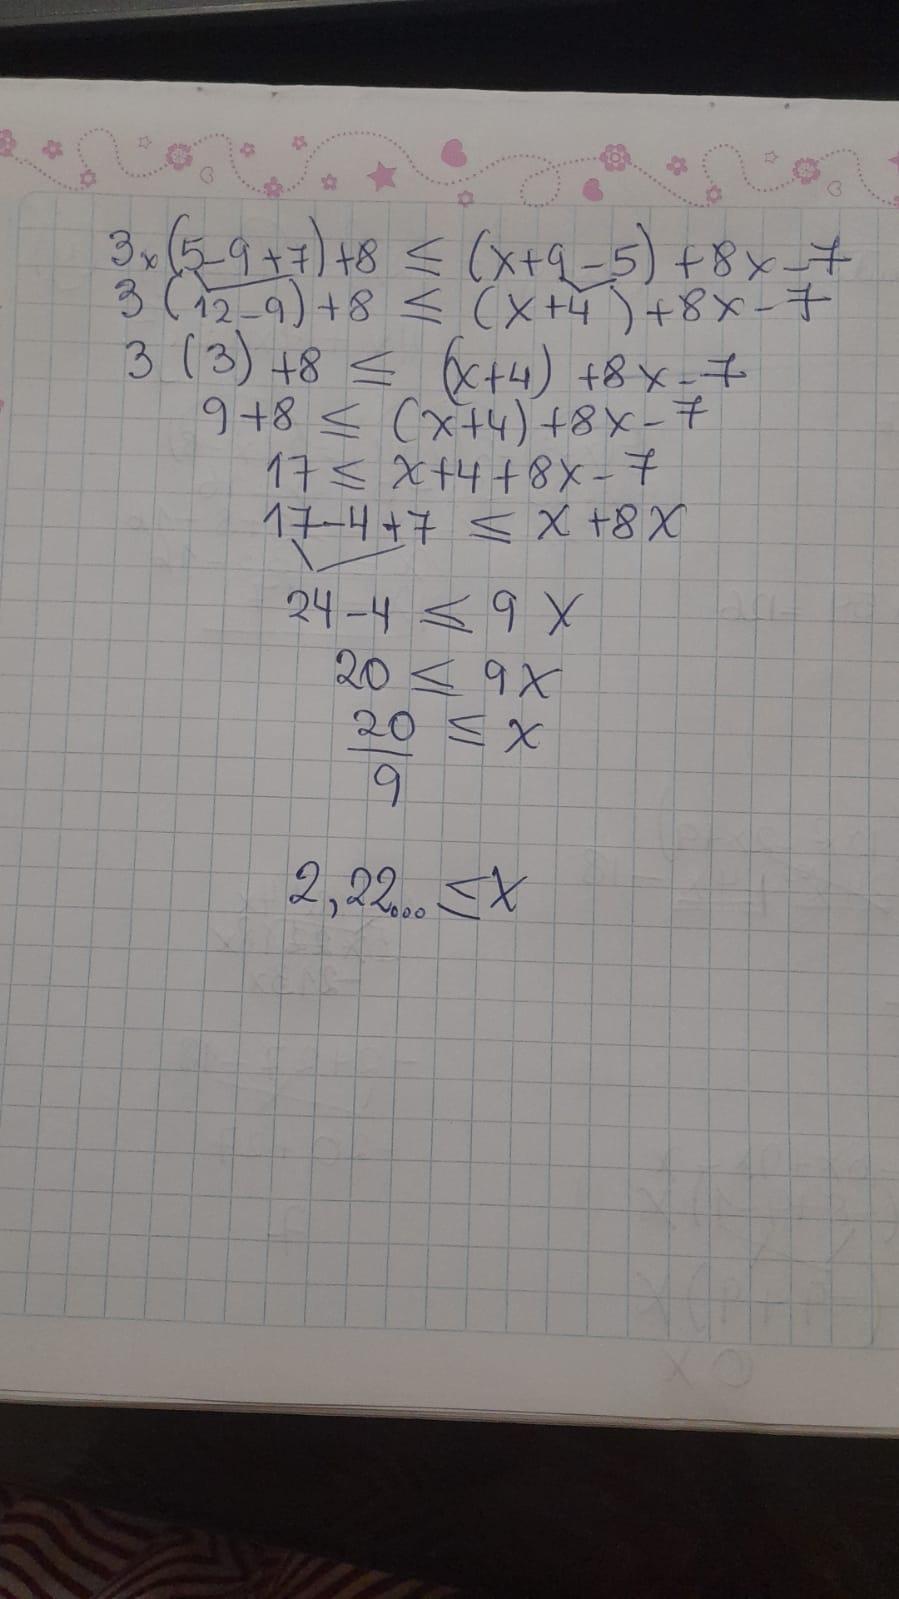 3x(5-9+7)+8 ≤ (x+9-5)+8x-7
3(12-9)+8 ≤ (x+4)+8x-7
3(3)+8 ≤ (x+4)+8x-7
9+8 ≤ (x+4)+8x-7
17 ≤ x+4+8x-7
17-4+7 ≤ x+8x
24-4 ≤ 9x
20 ≤ 9x
20/9 ≤ x
2,22... ≤ x